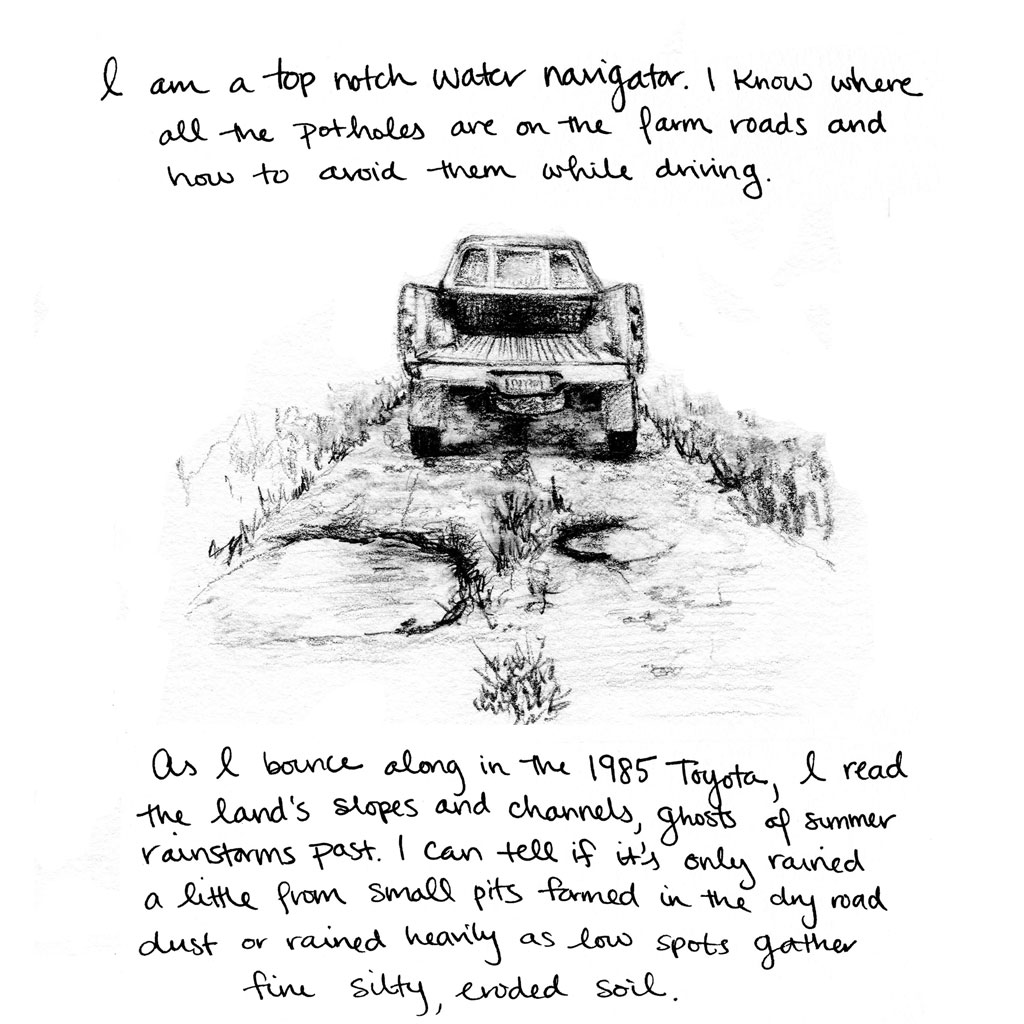 I am a top notch water navigator. I know where
all the potholes are on the farm roads and
how to avoid them while driving.
As I bounce along in the 1985 Toyota, I read
the land's slopes and channels, ghosts of summer
rainstorms past. I can tell if it's only rained
a little from small pits formed in the dry road
dust or rained heavily as low spots gather
fine silty, eroded soil.